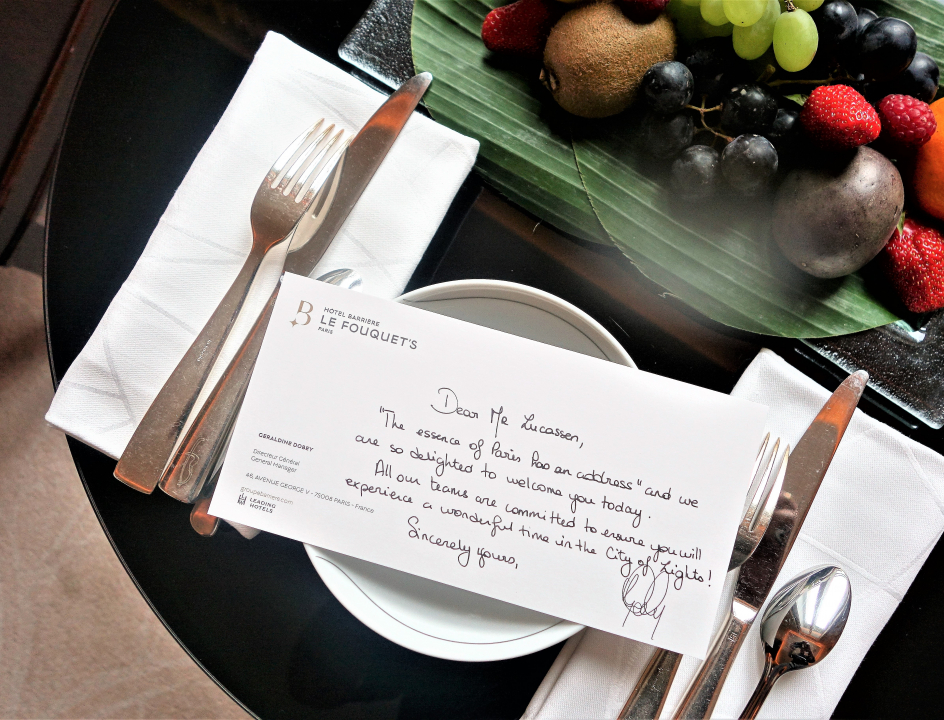 B
HOTEL BARRIÈRE
LE FOUQUET'S
PARIS
GERALDINE DOBEY
Directeur Général
General Manager
46 AVENUE GEORGE V - 75008 PARIS - France
groupebarriere.com
LEADING
HOTELS
Dear Me Lucassen,
"The essence of Paris has an address" and we
are so delighted to welcome you today.
All our teams are committed to ensure you will
experience a wonderful time in the City of Lights!
Sincerely yours,